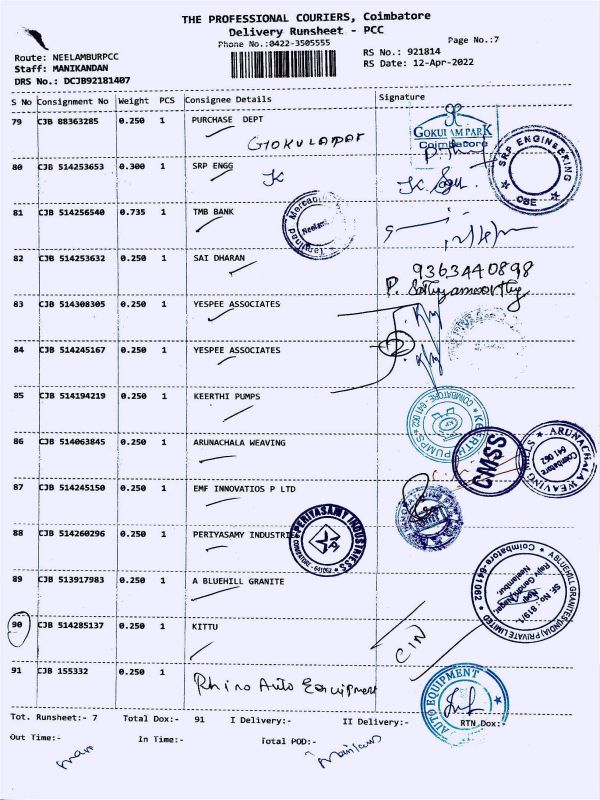 THE PROFESSIONAL COURIERS, Coimbatore
Delivery Runsheet - PCC
Phone No.:0422-3505555
Page No.:7
Route: NEELAMBURPCC
RS No.: 921814
Staff: MANIKANDAN
RS Date: 12-Apr-2022
DRS No.: DCJB92181407
S No Consignment No Weight PCS Consignee Details Signature
79 CJB 88363285 0.250 1 PURCHASE DEPT
GOKULAM PARK
Coimbatore
80 CJB 514253653 0.300 1 SRP ENGG
SRP ENGINEERING
CBE
81 CJB 514256540 0.735 1 TMB BANK
82 CJB 514253632 0.250 1 SAI DHARAN
9363440898
P. Sathyamoorthy
83 CJB 514308305 0.250 1 YESPEE ASSOCIATES
84 CJB 514245167 0.250 1 YESPEE ASSOCIATES
85 CJB 514194219 0.250 1 KEERTHI PUMPS
KEERTHI PUMPS
COIMBATORE - 641 062
86 CJB 514063845 0.250 1 ARUNACHALA WEAVING
CMSS
ARUNACHALA WEAVING MILLS
Coimbatore
641 062
87 CJB 514245150 0.250 1 EMF INNOVATIOS P LTD
88 CJB 514260296 0.250 1 PERIYASAMY INDUSTRIE
PERIYASAMY INDUSTRIESS
COIMBATORE - 641062
89 CJB 513917983 0.250 1 A BLUEHILL GRANITE
A BLUEHILL GRANITES (INDIA) PRIVATE LIMITED
Coimbatore-641 062
SF No : 819/1,
Rajiv Gandhi Nagar,
Neelambur,
90 CJB 514285137 0.250 1 KITTU
CIN
91 CJB 155332 0.250 1
Rhino Auto Equipment
AUTO EQUIPMENT
Tot. Runsheet:- 7 Total Dox:- 91 I Delivery:- II Delivery:- RTN Dox:-
Out Time:- In Time:- Total POD:-